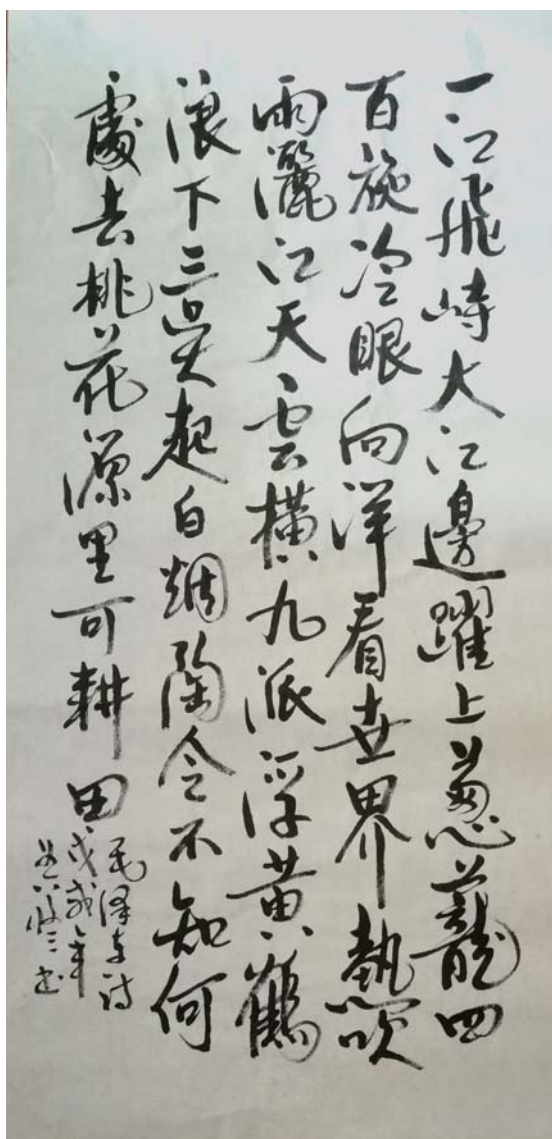 一江飛峙大江邊躍上葱蘢四
百旋冷眼向洋看世界熱吹
雨灑江天雲橫九派浮黄鶴
浪下三吴起白烟陶令不知何
處去桃花源里可耕田
毛泽东诗
戊戌年
书